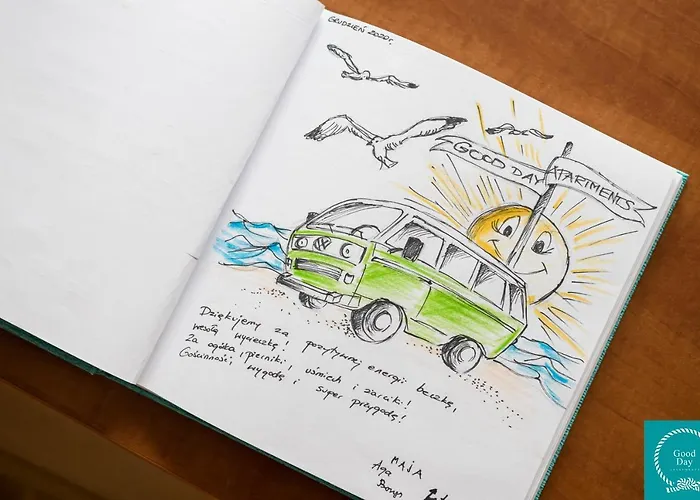 GRUDZIEŃ 2020r.
GOOD DAY APARTMENTS
Dziękujemy za pozytywnej energii beczkę,
wesołą wycieczkę!
Za ogórka, pierniki, uśmiech i żarciki!
Gościnność, wygodę i super przygodę!
MAJA
Aga
Good
Day